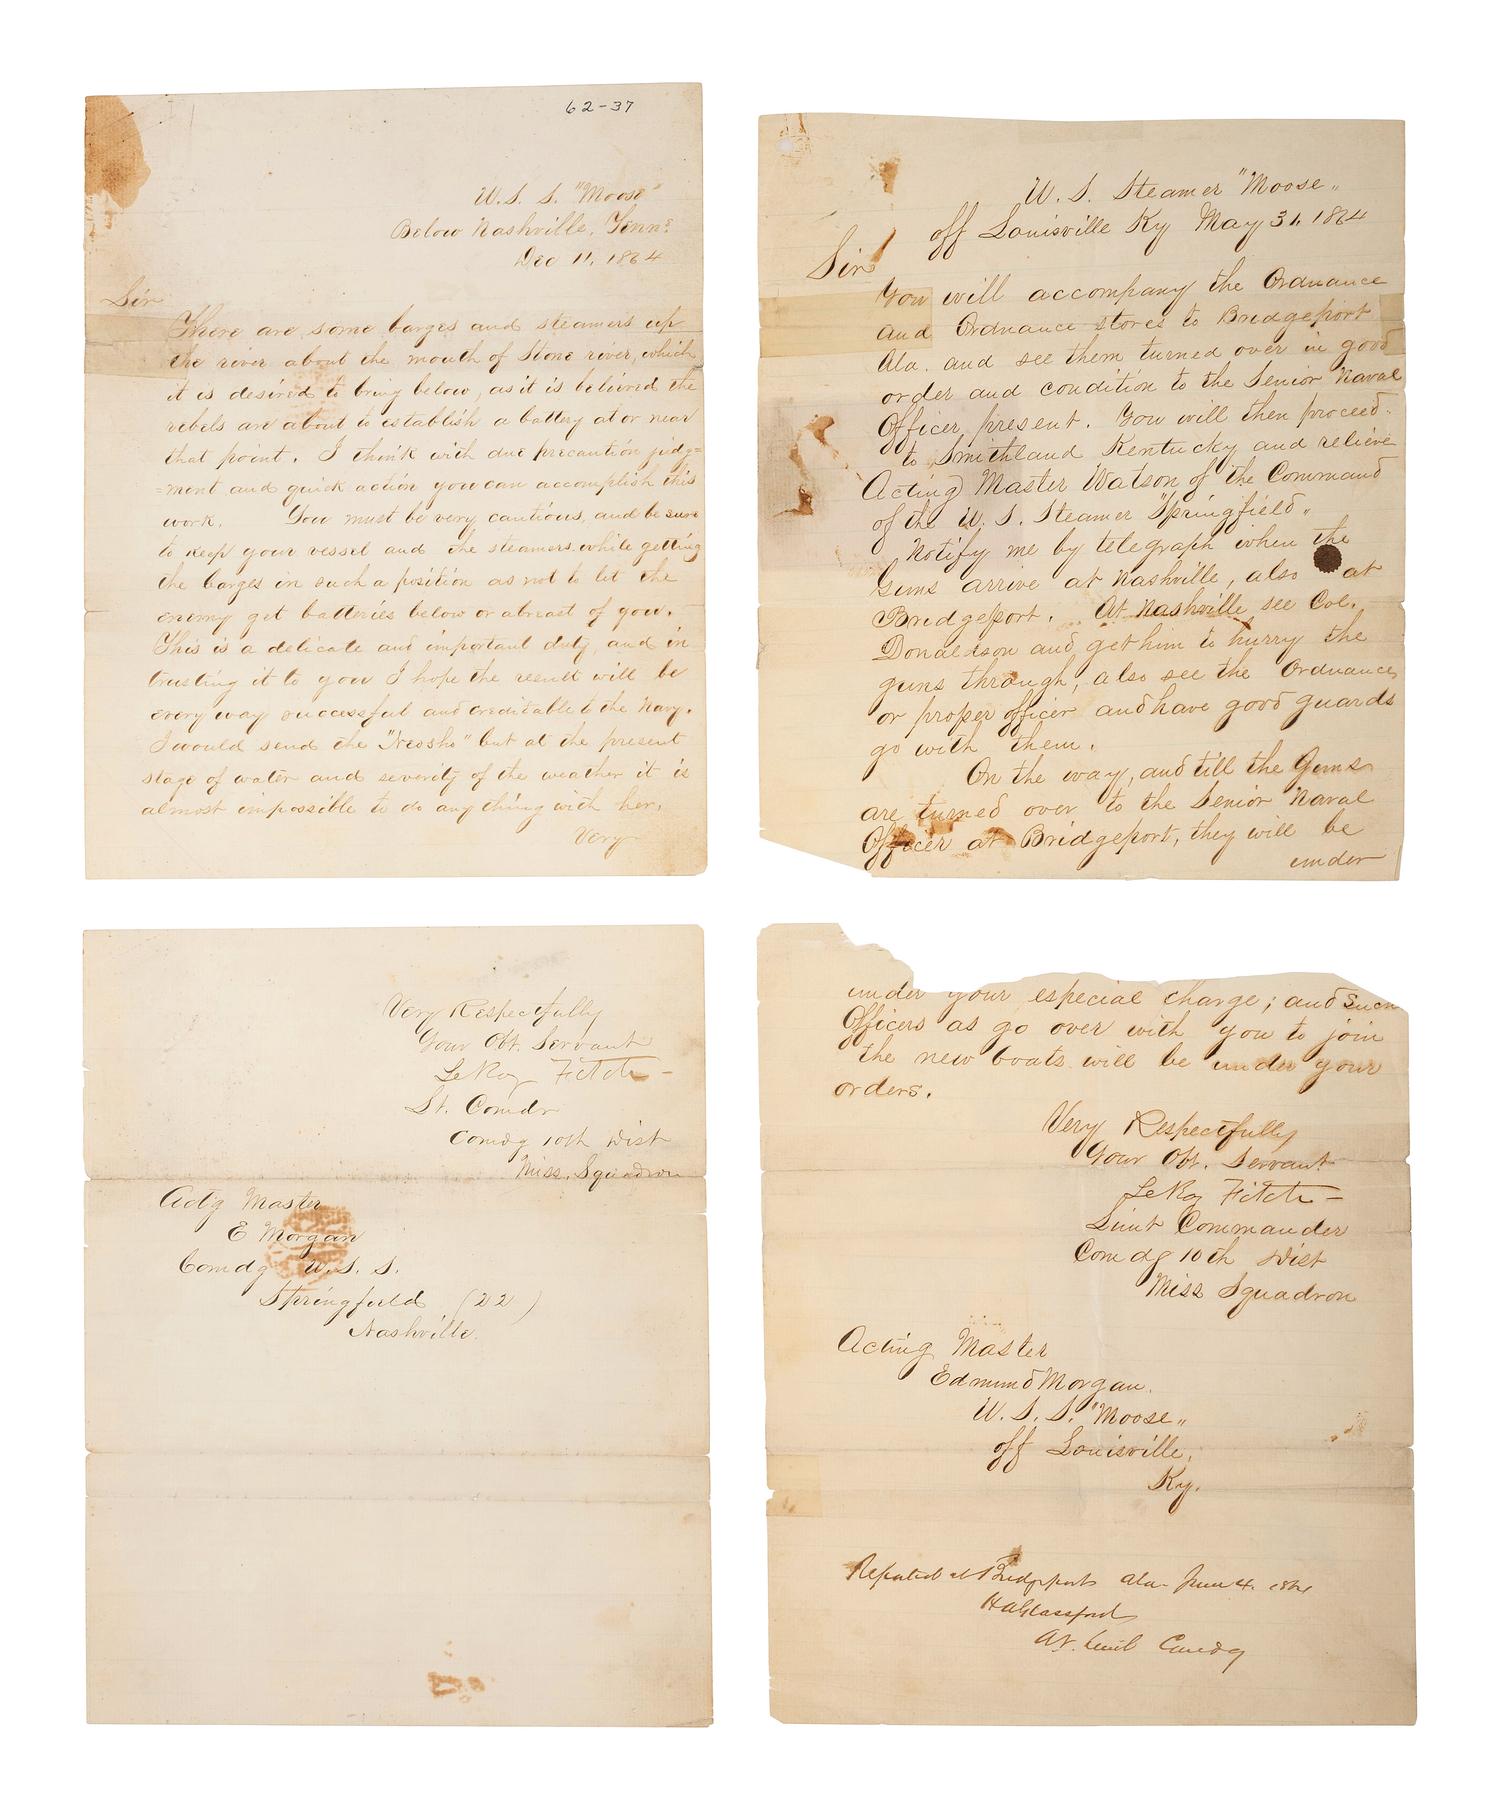 62-37
U. S. S. "Moose"
Below Nashville, Tenns
Dec 11, 1864
Sir
There are some barges and steamers up
the river about the mouth of Stone river, which
it is desired to bring below, as it is believed the
rebels are about to establish a battery at or near
that point. I think with due precaution judg=
=ment and quick action you can accomplish this
work. You must be very cautious, and be sure
to keep your vessel and the steamers while getting
the barges in such a position as not to let the
enemy get batteries below or abreast of you.
This is a delicate and important duty, and in
trusting it to you I hope the result will be
every way successful and creditable to the Navy.
I would send the "Neosho" but at the present
stage of water and severity of the weather it is
almost impossible to do any thing with her.
Very
Very Respectfully
Your Obt. Servant
LeRoy Fitch
Lt. Comdr
Comdg 10th Dist
Miss. Squadron
Act'g Master
E Morgan
Comdg U. S. S.
Springfield (22)
Nashville.
U. S. Steamer "Moose"
off Louisville Ky May 31, 1864
Sir
You will accompany the Ordnance
and Ordnance stores to Bridgeport
Ala. and see them turned over in good
order and condition to the Senior Naval
Officer present. You will then proceed
to Smithland Kentucky and relieve
Acting Master Watson of the Command
of the U. S. Steamer "Springfield"
Notify me by telegraph when the
Guns arrive at Nashville, also at
Bridgeport. At Nashville see Col.
Donaldson and get him to hurry the
guns through, also see the Ordnance
or proper officer and have good guards
go with them.
On the way, and till the Guns
are turned over to the Senior Naval
Officer at Bridgeport, they will be
under
under your especial charge; and such
Officers as go over with you to join
the new boats will be under your
orders.
Very Respectfully
Your Obt. Servant
LeRoy Fitch
Lieut Commander
Comdg 10th Dist
Miss Squadron
Acting Master
Edmund Morgan.
U. S. S. "Moose"
off Louisville,
Ky.
Reported at Bridgeport Ala June 4. 1864
H A Glassford
Comdg